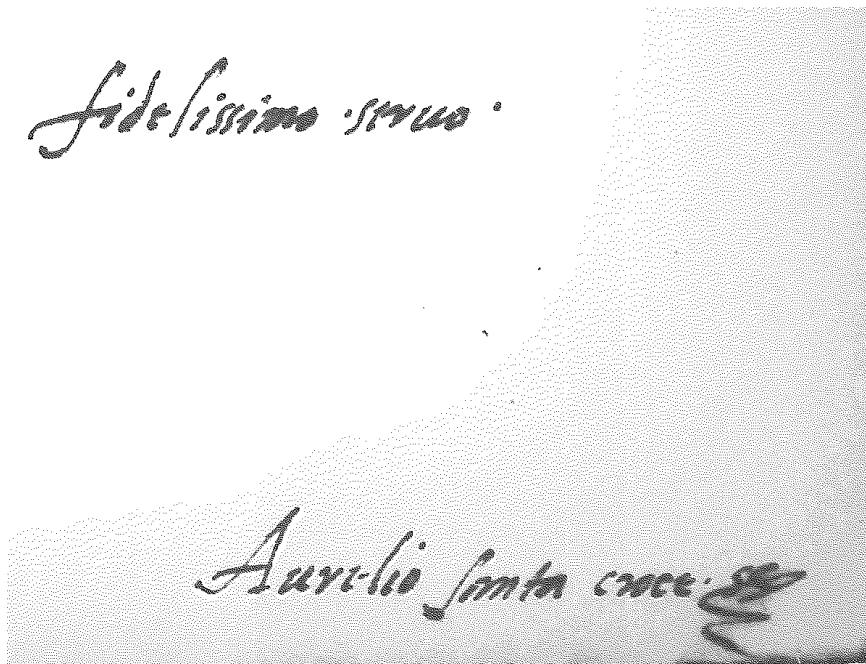 fidelissimo ·seruo·
Aurelio santa croce·